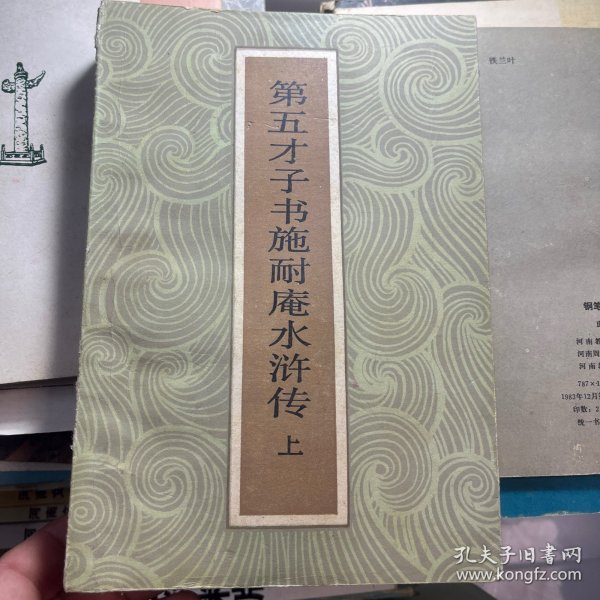 第五才子书施耐庵水浒传 上
铁兰叶
钢笔
河南
河南
河南
787×1
1983年12月
印数：2
统一书
孔夫子旧书网
www.kongfz.com